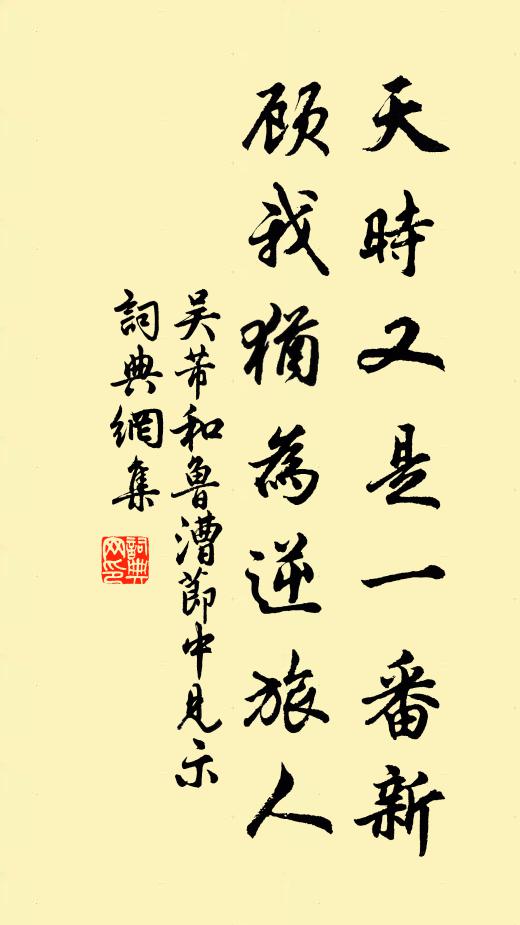 天時又是一番新
顾我猶為逆旅人
吴芾和魯漕節中見示
詞典網集
詞典网印